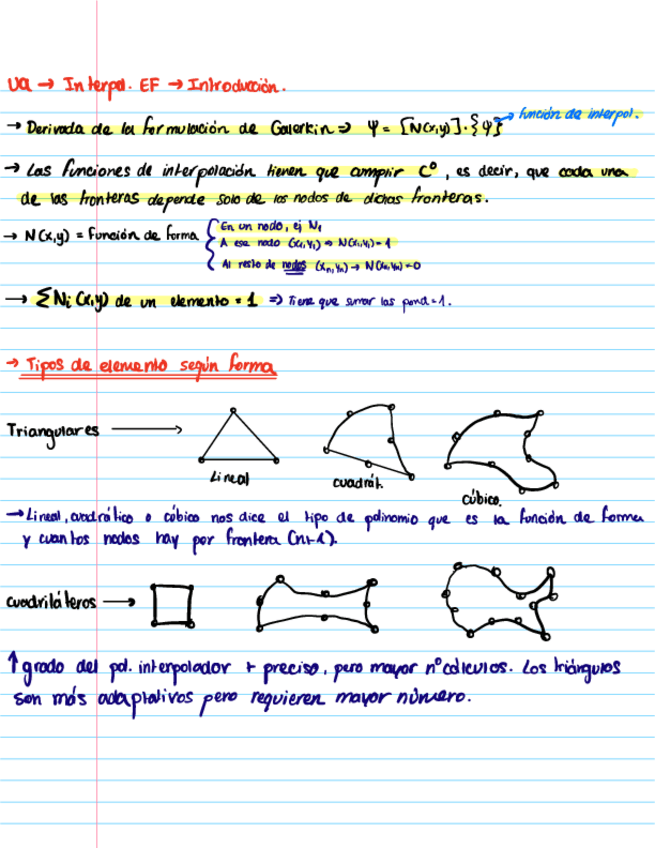 U2 → Interpol. EF → Introducción.
→ Derivada de la formulación de Galerkin => Ψ = [N(x,y)]·{Ψ} → función de interpol.
→ Las funciones de interpolación tienen que cumplir C⁰, es decir, que cada una
de las fronteras depende solo de los nodos de dichas fronteras.
→ N(x,y) = Función de forma
En un nodo, ej N₁
A ese nodo (x₁,y₁) → N(x₁,y₁)=1
Al resto de nodos (xₙ,yₙ) → N(xₙ,yₙ)=0
→ ΣNᵢ(x,y) de un elemento = 1 => Tiene que sumar las pond=1.
→ Tipos de elemento según forma
Triangulares →
Lineal
cuadrát.
cúbico.
→ Lineal, cuadrático o cúbico nos dice el tipo de polinomio que es la función de forma
y cuantos nodos hay por frontera (n+1).
Cuadriláteros →
↑ grado del pol. interpolador + preciso, pero mayor nº cálculos. Los triángulos
son más adaptativos pero requieren mayor número.